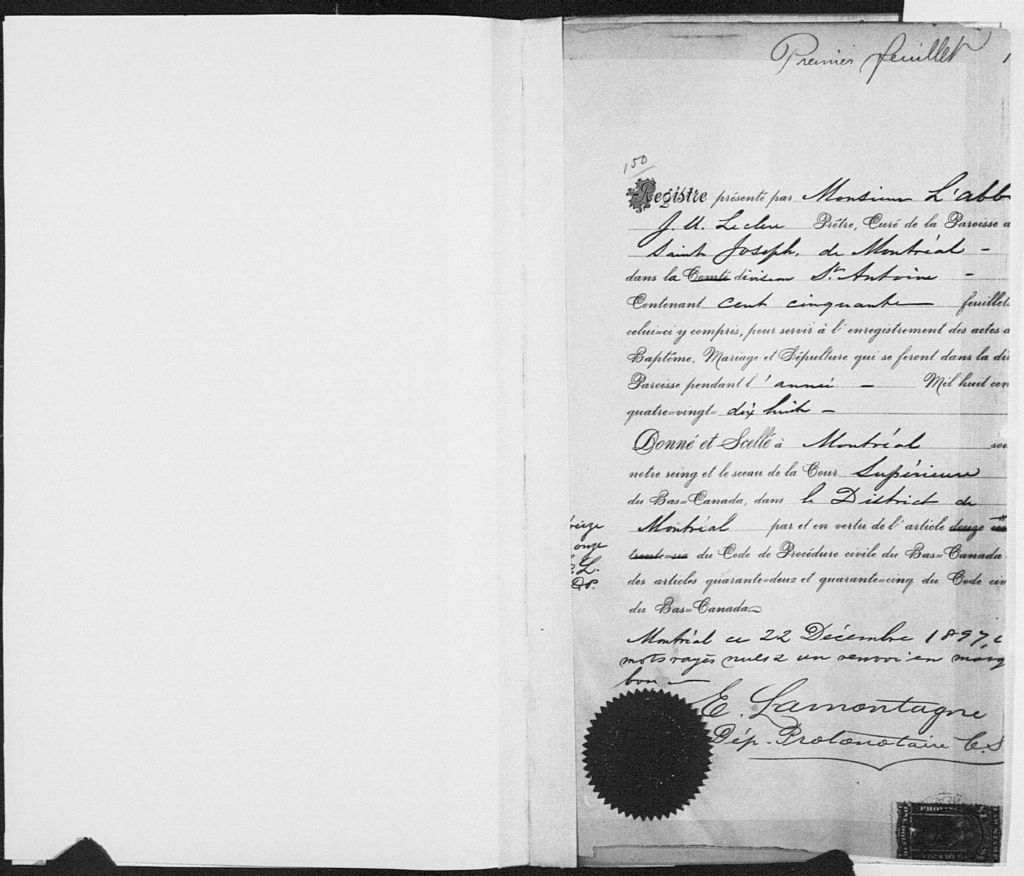 Premier feuillet 1
150
Registre présenté par Monsieur L'abb
J. U. Leclerc Prêtre, Curé de la Paroisse
Saint Joseph, de Montréal -
dans la Comté division St. Antoine -
Contenant cent cinquante feuillets
celui=ci y compris, pour servir à l'enregistrement des actes
Baptême, Mariage et Sépulture qui se feront dans la
Paroisse pendant l'année - Mil huit cen
quatre=vingt= dix huit -
Donné et Scellé à Montréal sou
notre seing et le sceau de la Cour Supérieure
du Bas=Canada, dans le District de
Montréal par et en vertu de l'article douze
reize
onze
trente=six du Code de Procédure civile du Bas=Canada
des articles quarante=deux et quarante=cinq du Code civ
du Bas=Canada
Montréal ce 22 Décembre 1897,
mots rayés nuls & un renvoi en marg
bon -
E. Lamontagne
Dép. Protonotaire C.S